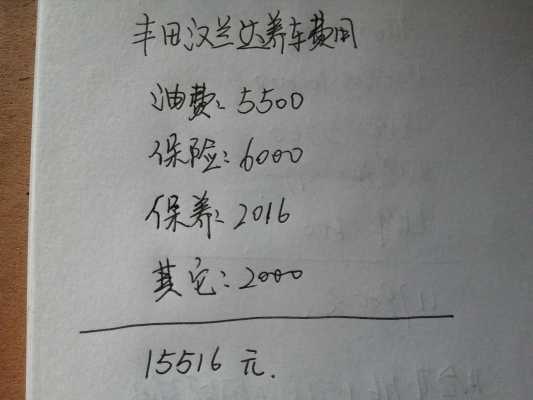 丰田汉兰达养车费用
油费：5500
保险：6000
保养：2016
其它：2000
15516 元.